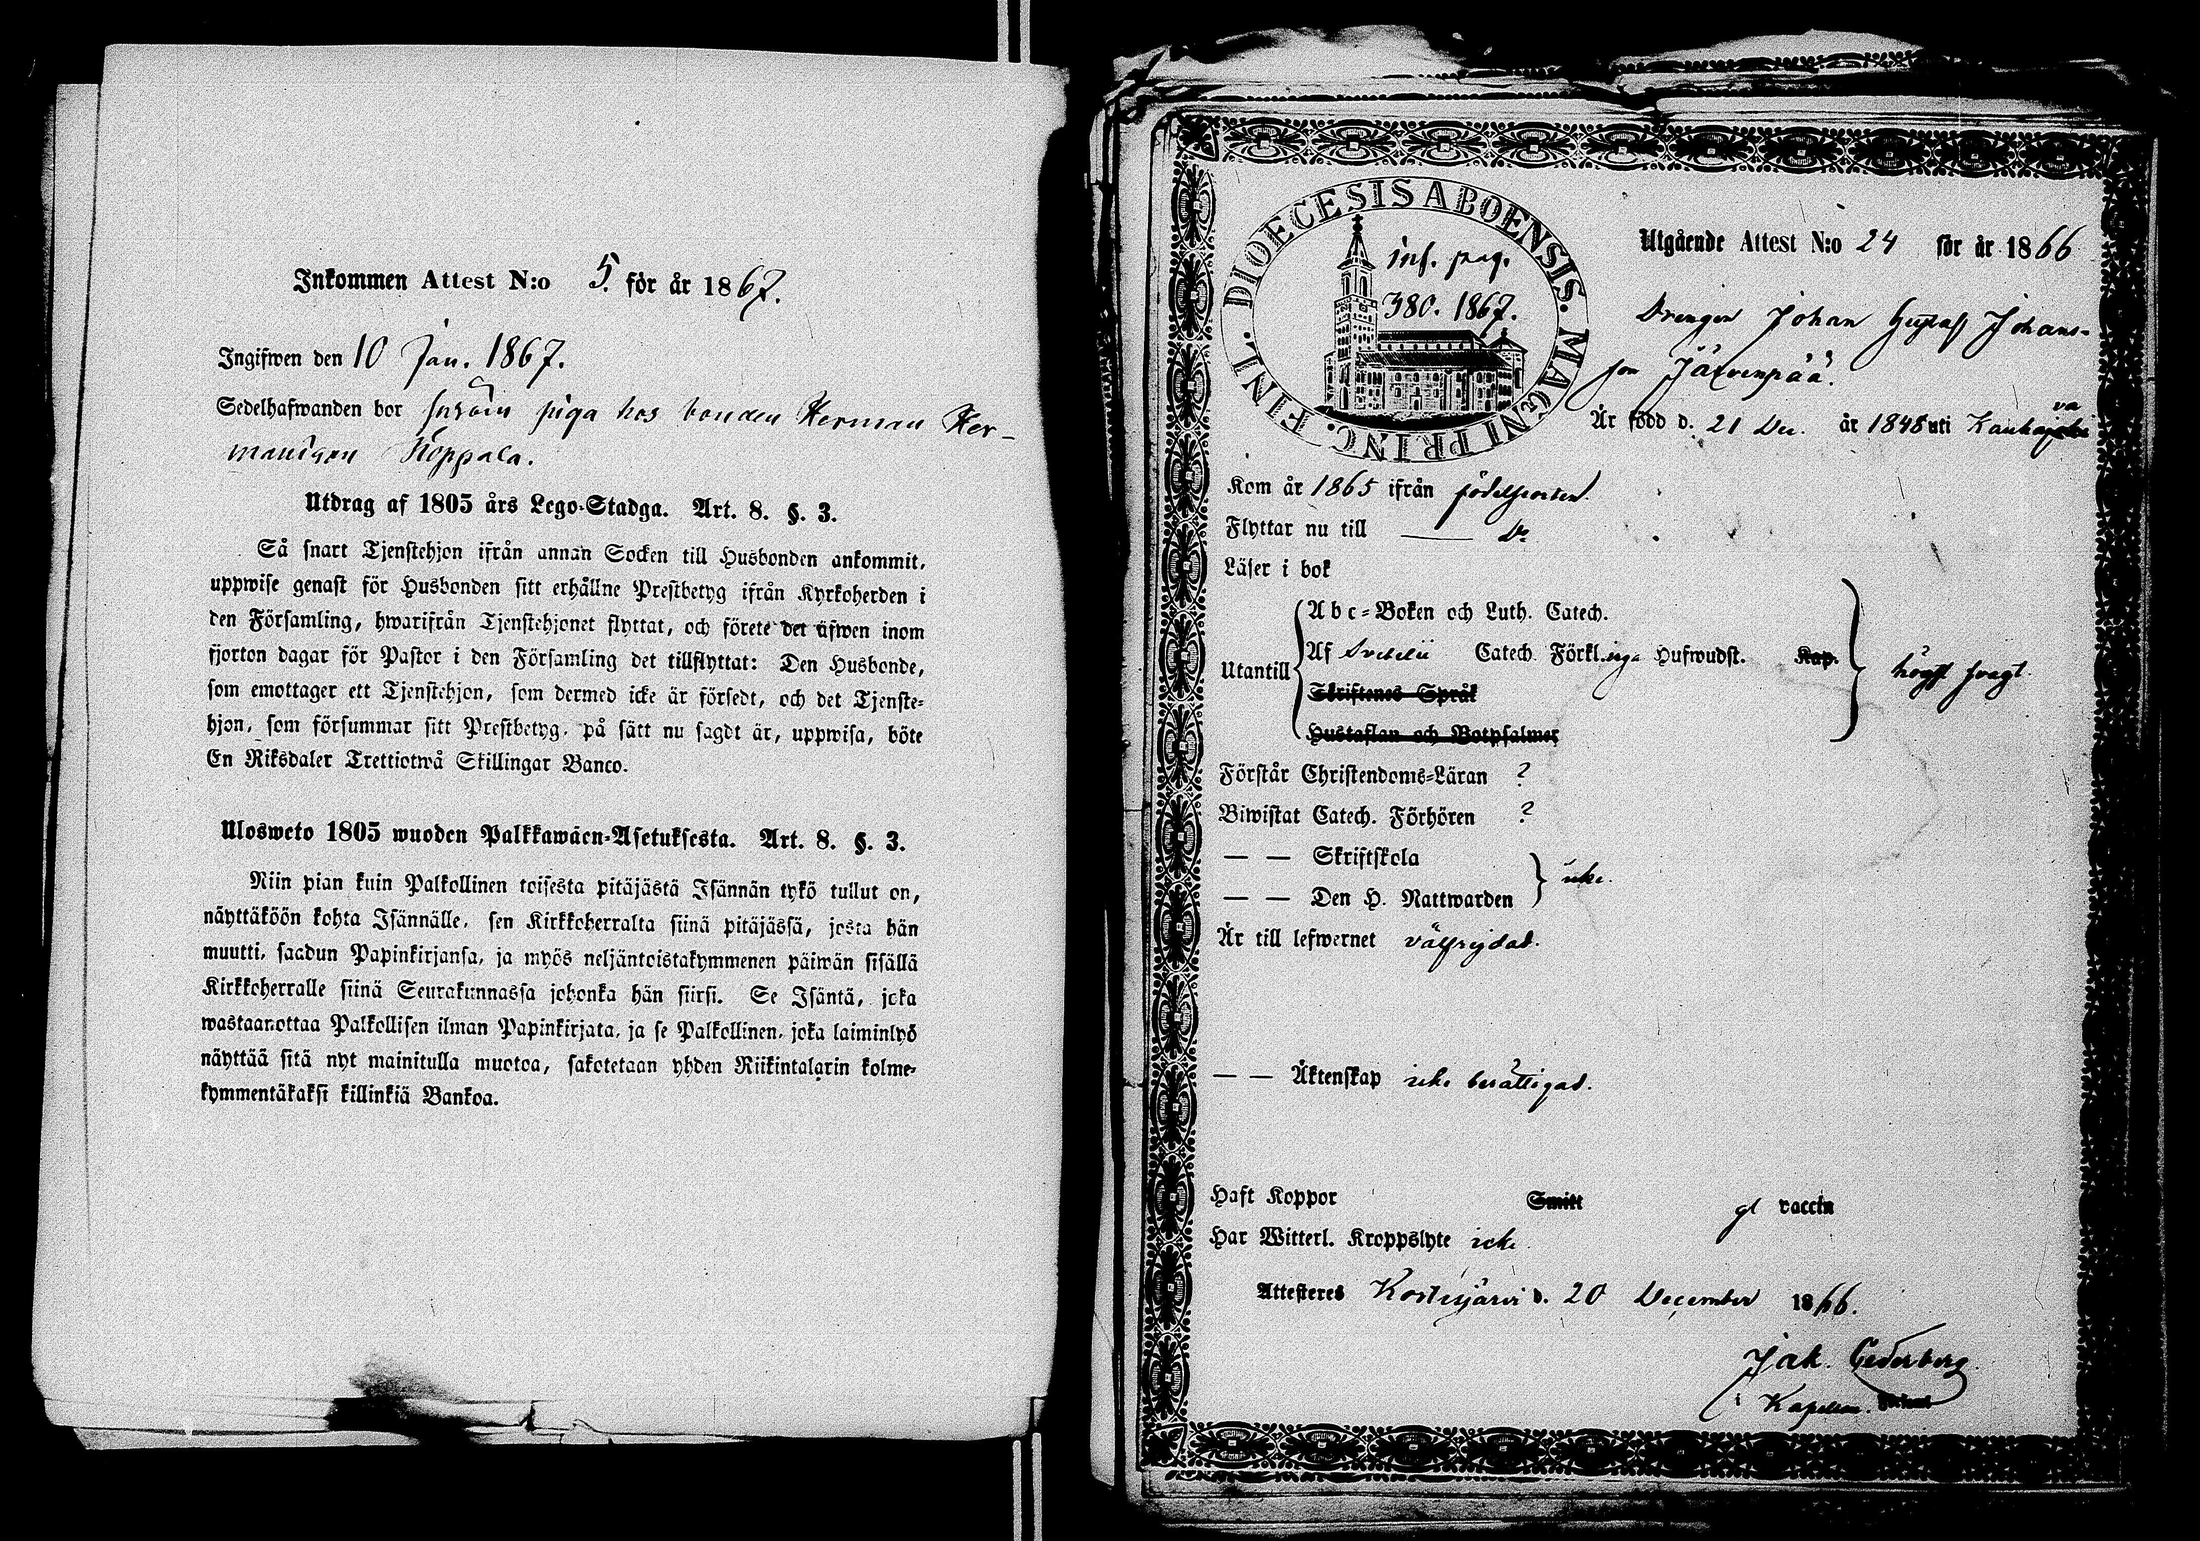 Inkommen Attest N:o 5. för år 1867.
Ingifwen den 10 Jan. 1867.
Sedelhafwanden bor såsom piga hos bonden Herman Her-
mansson Koppala.
Utdrag af 1805 års Lego-Stadga. Art. 8. §. 3.
Så snart Tjenstehjon ifrån annan Socken till Husbonden ankommit,
uppwise genast för Husbonden sitt erhållne Prestbetyg ifrån Kyrkoherden i
den Församling, hwarifrån Tjenstehjonet flyttat, och förete det äfwen inom
fjorton dagar för Pastor i den Församling det tillflyttat: Den Husbonde,
som emottager ett Tjenstehjon, som dermed icke är försedt, och det Tjenste-
hjon, som försummar sitt Prestbetyg, på sätt nu sagdt är, uppwisa, böte
En Riksdaler Trettiotwå Skillingar Banco.
Ulosweto 1805 wuoden Palkkawäen-Asetuksesta. Art. 8. §. 3.
Niin pian kuin Palkollinen toisesta pitäjästä Isännän tykö tullut on,
näyttäköön kohta Isännälle, sen Kirkkoherralta siinä pitäjässä, josta hän
muutti, saadun Papinkirjansa, ja myös neljäntoistakymmenen päiwän sisällä
Kirkkoherralle siinä Seurakunnassa johonka hän siirsi. Se Isäntä, joka
wastaanottaa Palkollisen ilman Papinkirjata, ja se Palkollinen, joka laiminlyö
näyttää sitä nyt mainitulla muotoa, sakotetaan yhden Riikintalarin kolme-
kymmentäkaksi killinkiä Bankoa.
DIOECESIS ABOENSIS. MAGNI PRINC. FINL.
inf. pag.
380. 1867.
Utgående Attest N:o 24 för år 1866
Drengen Johan Gustaf Johans-
son Järvenpää.
Är född d. 21 Dec. år 1848 uti Kauhava
Kom år 1865 ifrån födelseorten.
Flyttar nu till —— Do
Läser i bok
Abc-Boken och Luth. Catech.
Utantill Af Svebelii Catech. Förkl.inga Hufwudst. Kap. högst svagt.
Skriftenes Språk
Hustaflan och Botpsalmer
Förstår Christendoms-Läran ?
Biwistat Catech. Förhören ?
— — Skriftskola
— — Den H. Nattwarden icke.
Är till lefwernet välfrejdad.
— — Äktenskap icke berättigad.
Haft Koppor Smitt gl vaccin
Har Witterl. Kroppslyte icke
Attesteres Kortesjärvi d. 20 December 1866.
Jak. Cederberg.
i Kapellan.